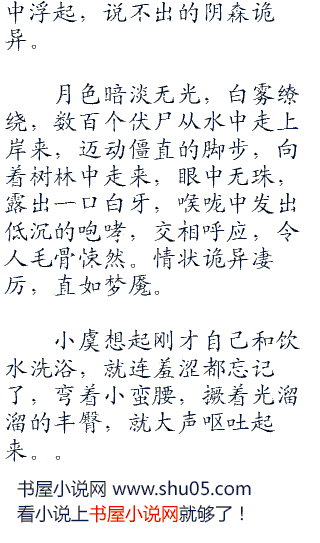 中浮起，说不出的阴森诡
异。
月色暗淡无光，白雾缭
绕，数百个伏尸从水中走上
岸来，迈动僵直的脚步，向
着树林中走来，眼中无珠，
露出一口白牙，喉咙中发出
低沉的咆哮，交相呼应，令
人毛骨悚然。情状诡异凄
厉，直如梦魇。
小虞想起刚才自己和饮
水洗浴，就连羞涩都忘记
了，弯着小蛮腰，撅着光溜
溜的丰臀，就大声呕吐起
来。。
书屋小说网 www.shu05.com
看小说上书屋小说网就够了！